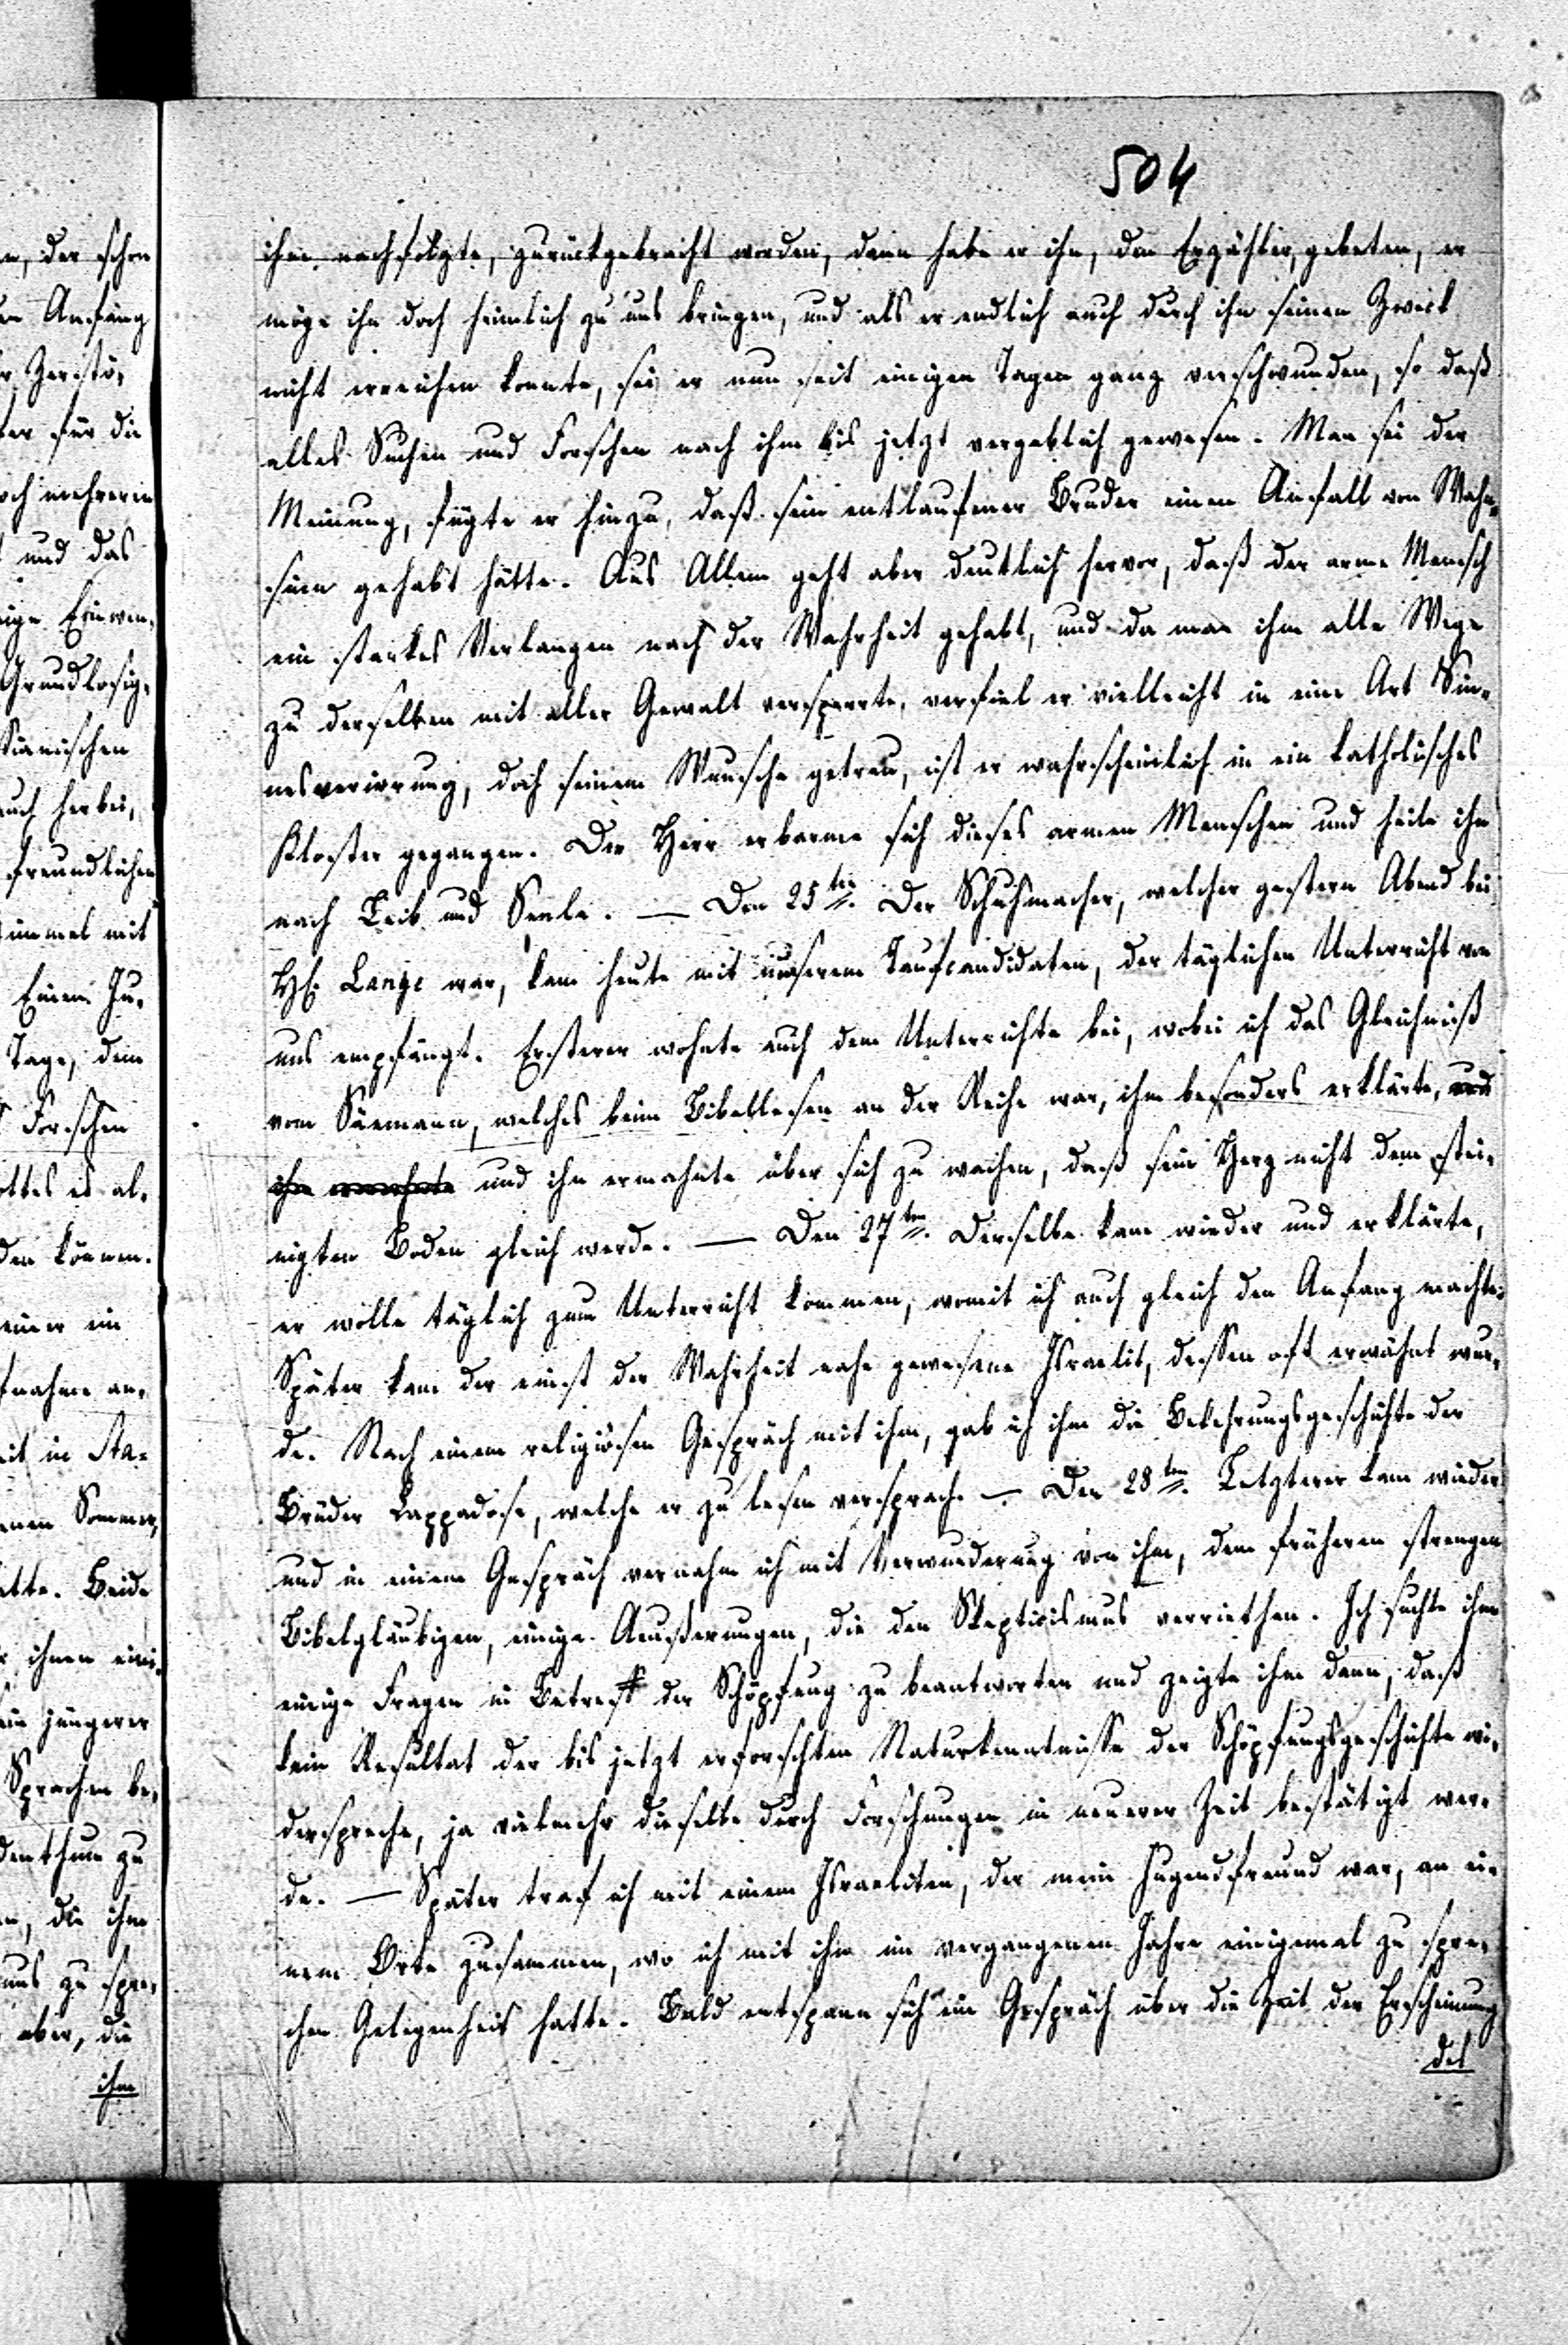 504
ihm nachfolgte, zurückgebracht worden, dann habe er ihn, den Erzähler, gebeten, er
möge ihn doch heimlich zu uns bringen, und als er endlich auch durch ihn seinen Zweck
nicht erreichen konnte, sei er nun seit einigen Tagen ganz verschwunden, so daß
alles Suchen und Forschen nach ihm bis jetzt vergeblich gewesen. Man sei der
Meinung, fügte er hinzu, daß sein entlaufener Bruder einen Anfall von Wahn-
sinn gehabt hätte. Aus Allem geht aber deutlich hervor, daß der arme Mensch
ein starkes Verlangen nach der Wahrheit gehabt, und da man ihm alle Wege
zu derselben mit aller Gewalt versperrte, verfiel er vielleicht in eine Art Sin-
nesverirrung, doch seinem Wunsche getreu, ist er wahrscheinlich in ein katholisches
Kloster gegangen. Der Herr erbarme sich dieses armen Menschen und heile ihn
nach Leib und Seele. — Den 25ten. Der Schuhmacher, welcher gestern Abend bei
H. Lange war, kam heute mit unserem Taufcandidaten, der täglichen Unterricht von
uns empfängt. Ersterer wohnte auch dem Unterrichte bei, wobei ich das Gleichniß
vom Säemann, welches beim Bibellesen an der Reihe war, ihm besonders erklärte, und
ihn ermahnte und ihn ermahnte über sich zu wachen, daß sein Herz nicht dem stei-
nigten Boden gleich werde. — Den 27ten. Derselbe kam wieder und erklärte,
er wolle täglich zum Unterricht kommen, womit ich auch gleich den Anfang machte.
Später kam der einst der Wahrheit nahe gewesene Israelit, dessen oft erwähnt wur-
de. Nach einem religiösen Gespräch mit ihm, gab ich ihm die Bekehrungsgeschichte der
Brüder Cappadose, welche er zu lesen versprach. — Den 28ten. Letzterer kam wieder
und in einem Gespräch vernahm ich mit Verwunderung von ihm, dem früheren strengen
Bibelgläubigen, einige Aeußerungen, die den Skepticismus verriethen. Ich suchte ihm
einige Fragen in Betreff der Schöpfung zu beantworten und zeigte ihm dann, daß
kein Resultat der bis jetzt erforschten Naturkenntnisse der Schöpfungsgeschichte wi-
derspreche, ja vielmehr dieselbe durch Forschungen in neuerer Zeit bestätigt wer-
de. — Später traf ich mit einem Israeliten, der mein Jugendfreund war, an ei-
nem Orte zusammen, wo ich mit ihm im vergangenen Jahre einigemal zu spre-
chen Gelegenheit hatte. Bald entspann sich ein Gespräch über die Zeit der Erscheinung
des